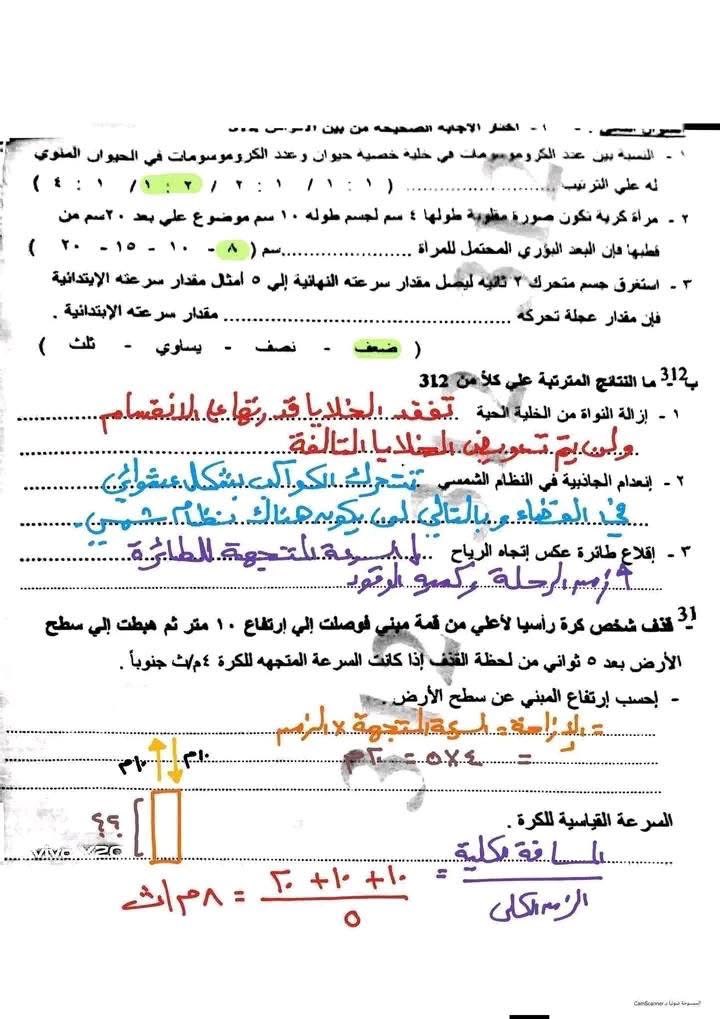 ١ - اختر الاجابة الصحيحة من بين الأقواس 312
١ - النسبة بين عدد الكروموسومات في خلية خصية حيوان وعدد الكروموسومات في الحيوان المنوي
له علي الترتيب .................... ( ١ : ١ / ١ : ٢ / ٢ : ١ / ١ : ٤ )
٢ - مرأة كرية تكون صورة مقلوبة طولها ٤ سم لجسم طوله ١٠ سم موضوع علي بعد ٢٠سم من
قطبها فإن البعد البؤري المحتمل للمرأة ....................سم ( ٨ - ١٠ - ١٥ - ٢٠ )
٣ - استغرق جسم متحرك ٢ ثانيه ليصل مقدار سرعته النهائية إلي ٥ أمثال مقدار سرعته الإبتدائية
فإن مقدار عجلة تحركه .................... مقدار سرعته الابتدائية .
( ضعف - نصف - يساوي - ثلث )
ب 312 - ما النتائج المترتبة علي كلاً من 312
١ - إزالة النواة من الخلية الحية تفقد الخلايا قدرتها على الانقسام
ولن يتم تعويض الخلايا التالفة
٢ - إنعدام الجاذبية في النظام الشمسي تتحرك الكواكب بشكل عشوائي
في الفضاء وبالتالي لن يكون هناك نظام شمسي.
٣ - إقلاع طائرة عكس إتجاه الرياح السرعة المتجهة للطائرة
زمن الرحلة وكمية الوقود
31 - قذف شخص كرة رأسيا لأعلي من قمة مبني فوصلت إلي إرتفاع ١٠ متر ثم هبطت إلي سطح
الأرض بعد ٥ ثواني من لحظة القذف إذا كانت السرعة المتجهه للكرة ٤م/ث جنوباً .
- إحسب إرتفاع المبني عن سطح الأرض .
= الإزاحة = السرعة المتجهة × الزمن
= ٤×٥ = ٢٠م
١٠م ١٠م
السرعة القياسية للكرة .
؟؟
vivo X20
= المسافة الكلية / الزمن الكلى
١٠ + ١٠ + ٢٠ / ٥ = ٨ م/ث
312
312
312
الممسوحة ضوئيا بـ CamScanner